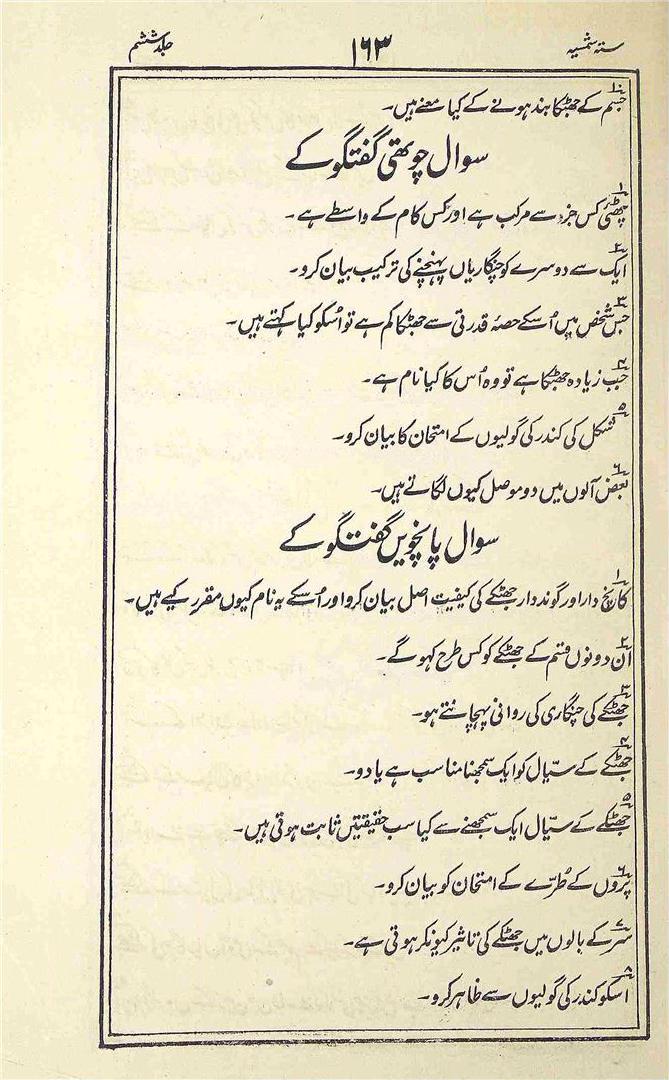 ستہ شمسیہ ۱۶۳ جلد ششم
۱۰ جسم کے جھٹکا بند ہونے کے کیا معنے ہیں۔
سوال چوتھی گفتگو کے
۱ پھٹئی کس جزو سے مرکب ہے اور کس کام کے واسطے ہے۔
۲ ایک سے دوسرے کو چنگاریاں پہنچنے کی ترکیب بیان کرو۔
۳ جس شخص میں اُسکے حصۂ قدرتی سے جھٹکا کم ہے تو اُسکو کیا کہتے ہیں۔
۴ جب زیادہ جھٹکا ہے تو وہ اُس کا کیا نام ہے۔
۵ شکل کی کندر کی گولیوں کے امتحان کا بیان کرو۔
۶ بعض آلوں میں دو موصل کیوں لگاتے ہیں۔
سوال پانچویں گفتگو کے
۱ کانچ دار اور گوند دار جھٹکے کی کیفیت اصل بیان کرو اور اُسکے یہ نام کیوں مقرر کیے ہیں۔
۲ اُن دونوں قسم کے جھٹکے کو کس طرح کہو گے۔
۳ جھٹکے کی چنگاری کی روانی پہچانتے ہو۔
۴ جھٹکے کے سیّال کو ایک سمجھنا مناسب ہے یا دو۔
۵ جھٹکے کے سیّال ایک سمجھنے سے کیا سب حقیقتیں ثابت ہوتی ہیں۔
۶ پروں کے طُرّے کے امتحان کو بیان کرو۔
۷ سر کے بالوں میں جھٹکے کی تاثیر کیونکر ہوتی ہے۔
۸ اسکو کندر کی گولیوں سے ظاہر کرو۔